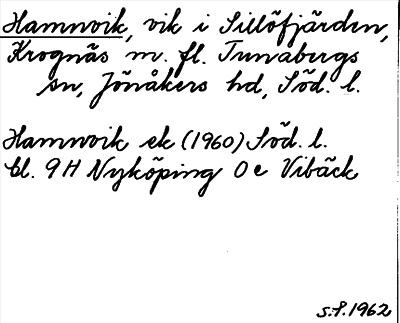 Hamnvik, vik i Sillöfjärden,
Krognäs m. fl. Tunabergs
sn, Jönåkers hd, Söd. l.
Hamnvik ek (1960) Söd. l.
bl. 9H Nyköping 0e Vibäck
s.P. 1962